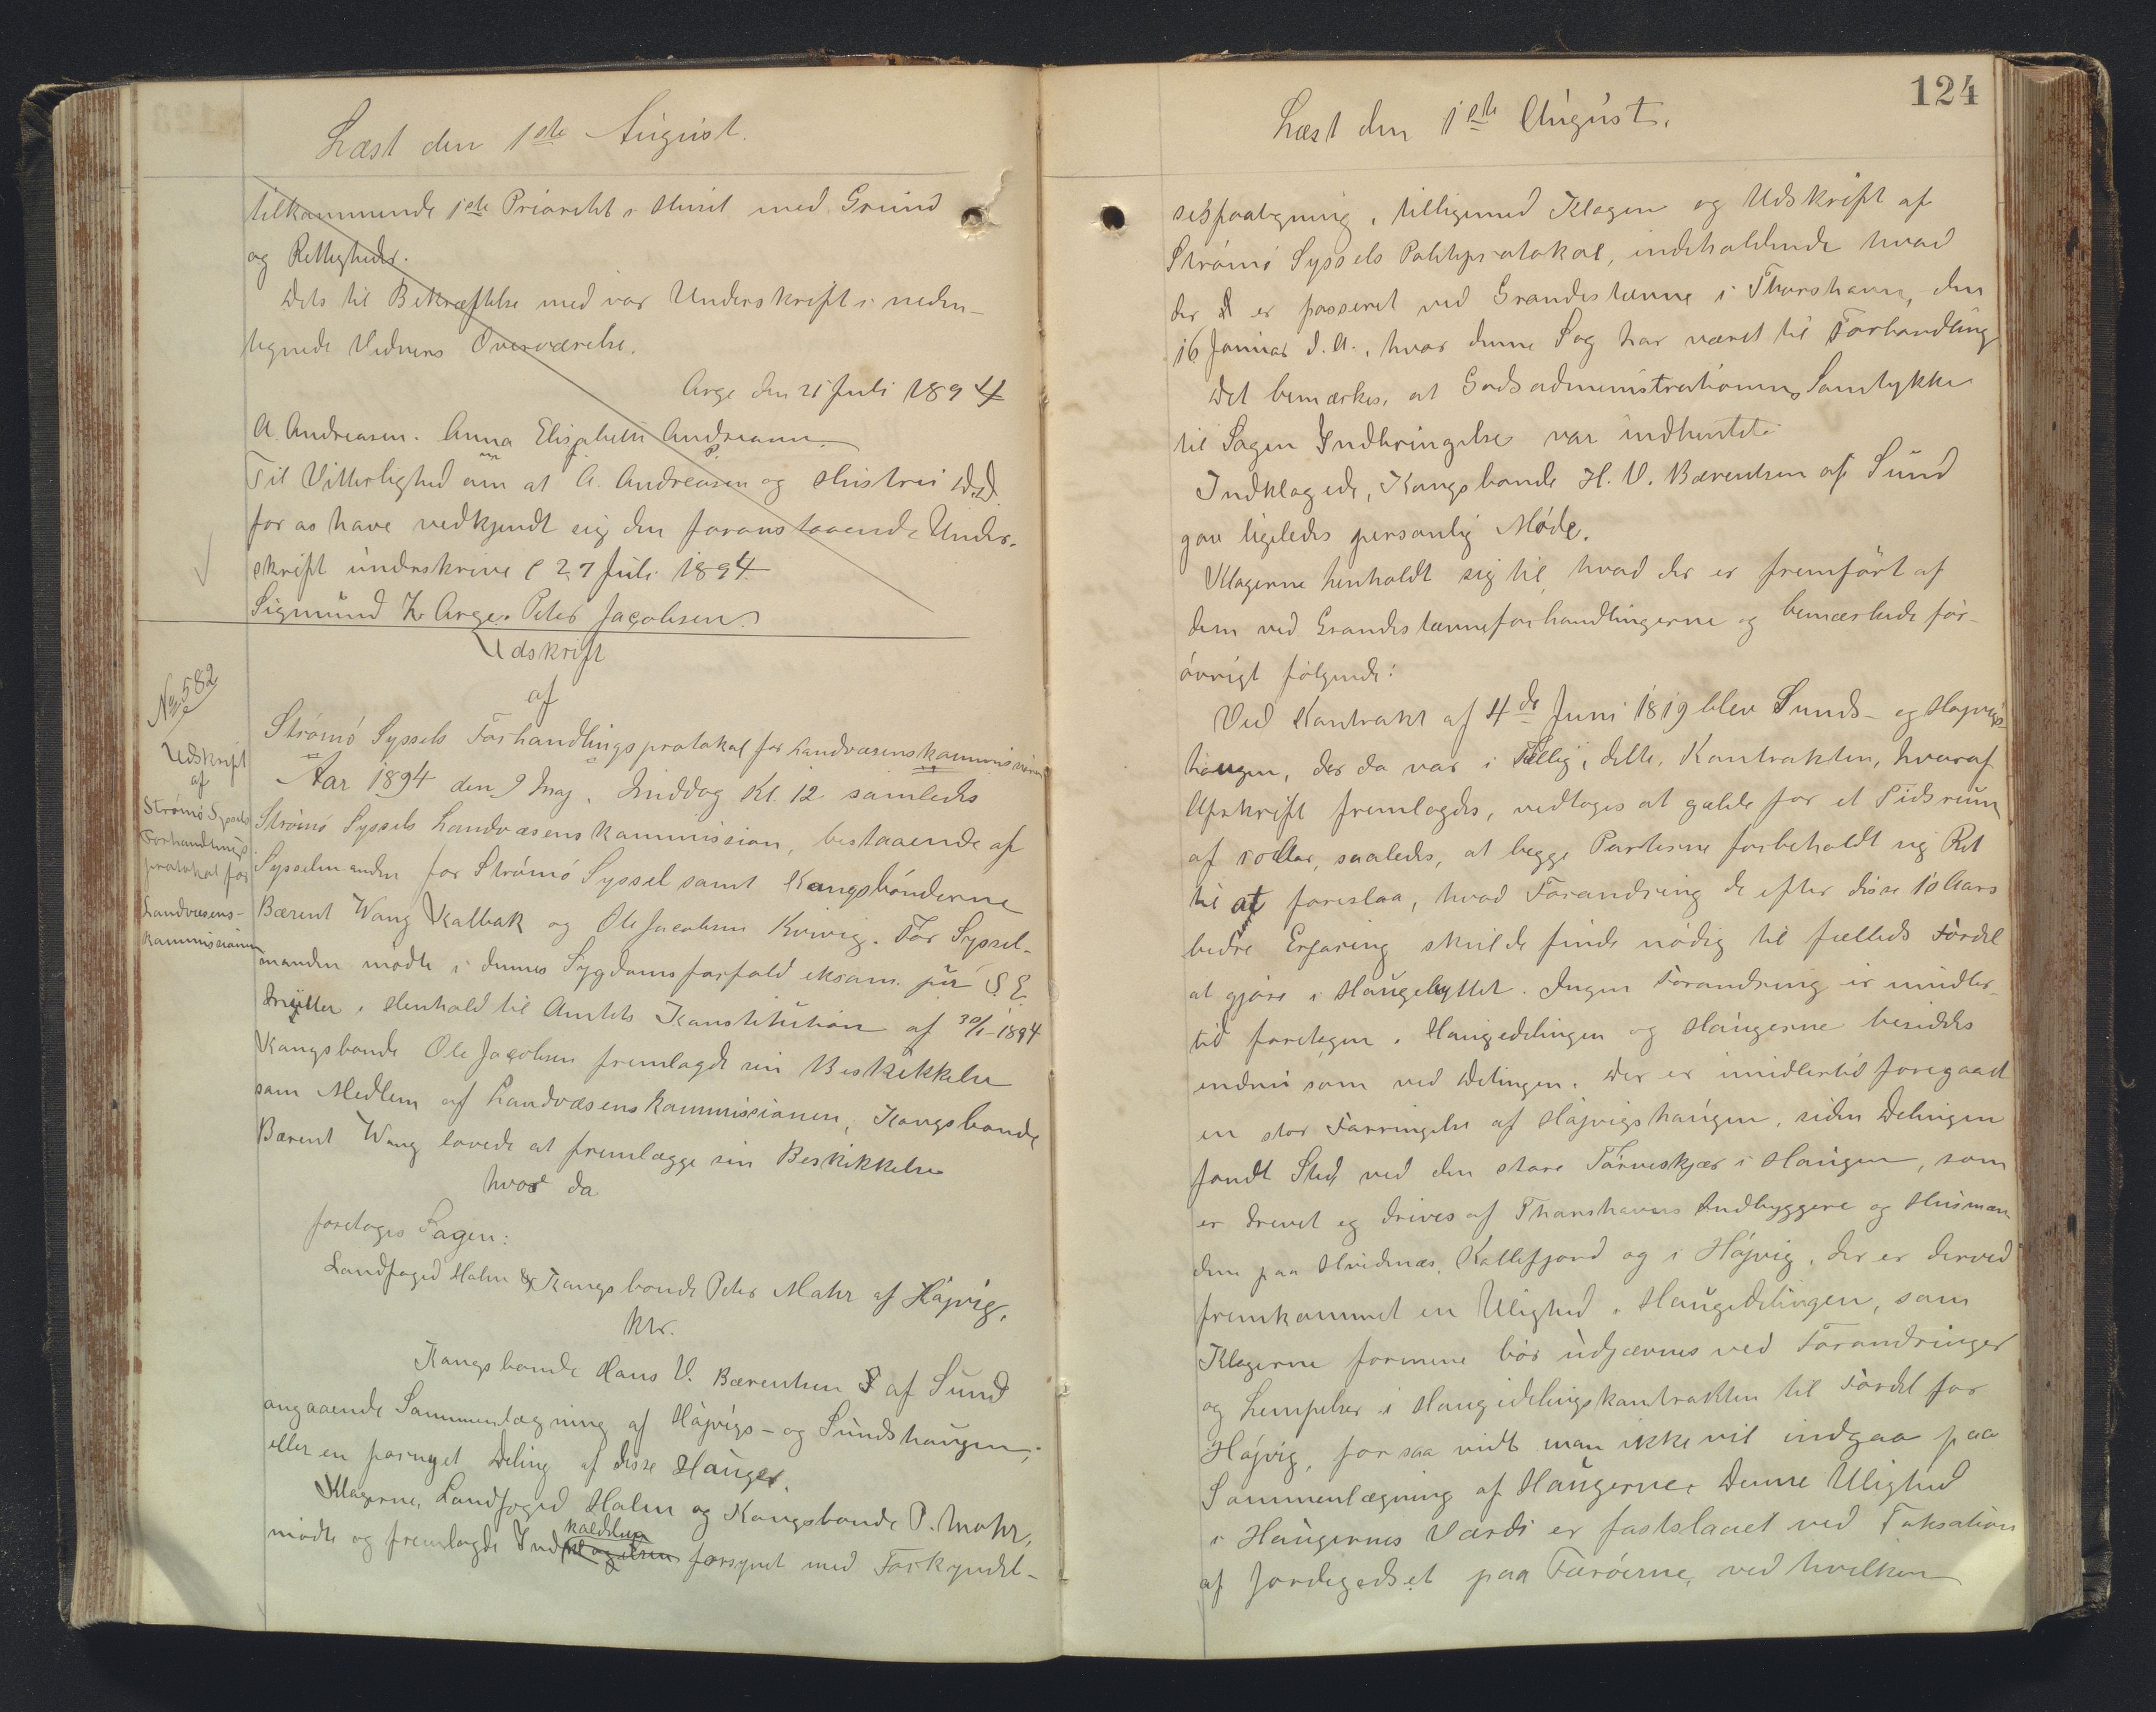 Læst den 1ste August.
tilkommende 1ste Prioritet i Huset med Grund
og Rettigheder.
Dets til Bekræftelse med vor Underskrift i neden-
tegnede Vidners Overværelse.
Arge den 21 Juli 1894
A. Andreasen. Anna Elisabeth Andreasen
Til Vitterlighed om at A. Andreasen og Hustru D.D.
for os have vedkjendt sig den foranstaaende Under-
skrift underskrive 27 Juli 1894.
Sigmund Arge. Peter Jacobsen
No 582
Udskrift
af
Strømø Syssels
Forhandlings
protokol for
Landvæsens-
kommissionen
Udskrift
af
Strømø Syssels Forhandlingsprotokol for Landvæsenskommissionen
Aar 1894 den 9 Maj, Middag Kl. 12 samledes
Strømø Syssels Landvæsenskommission, bestaaende af
Sysselmanden for Strømø Syssel samt Kongsbønderne
Bærent Wang Kalbak og Ole Jacobsen Kvivig. For Syssel-
manden mødte i dennes Sygdomsforfald exam. jur S. E.
Müller i Henhold til Amtets Konstitution af 30/1-1894
Kongsbonde Ole Jacobsen fremlagde sin Beskikkelse
som Medlem af Landvæsenskommissionen, Kongsbonde
Bærent Wang lovede at fremlægge sin Beskikkelse
hvor da
foretoges Sagen:
Landfoged Holm & Kongsbonde Peter Mohr af Højvig,
ktr.
Kongsbonde Hans V. Bærentsen af Sund
angaaende Sammenlægning af Højvigs- og Sundshaugen,
eller en fornyet Deling af disse Hauger.
Klagerne, Landfoged Holm og Kongsbonde P. Mohr,
mødte og fremlagde Indkaldelsen forsynet med Forkyndel-
124
Læst den 1ste August.
sespaategning, tilligemed Klagen og Udskrift af
Strømø Syssels Politiprotokol, indeholdende hvad
der er passeret ved Grandestævne i Thorshavn, den
16 Januar d. A., hvor denne Sag har været til Forhandling
Det bemærkes, at Godsadministrationens Samtykke
til Sagen Indbringelse var indhentet.
Indklagede, Kongsbonde H. V. Bærentsen af Sund
gav ligeledes personlig Møde.
Klagerne henholdt sig til, hvad der er fremført af
dem ved Grandestævneforhandlingerne og bemærkede for-
øvrigt følgende:
Ved Kontrakt af 4de Juni 1819 blev Sunds- og Højvigs-
haugen, der da var i Fællig, delte, Kontrakten, hvoraf
Afskrift fremlagdes, vedtoges at gælde for et Tidsrum
af 10 Aar, saaledes, at begge Parterne forbeholdt sig Ret
til at foreslaa, hvad Forandring de efter disse 10 Aars
bedre Erfaring skulde finde nødig til fælleds Fordel
at gjøre i Haugebyttet. Ingen Forandring er imidler-
tid foretagen i Haugedelingen og Haugerne besiddes
endnu som ved Delingen. Der er imidlertid foregaaet
en stor Forringelse af Højvigshaugen, siden Delingen
fandt Sted ved den store Tørveskjær i Haugen, som
er drevet og drives af Thorshavns Indbyggere og Husmæn-
dene paa Hvidenæs, Kollefjord og i Højvig, der er derved
fremkommet en Ulighed i Haugedelingen, som
Klagerne formene bør udjævnes ved Forandringer
og Lempelser i Haugedelingskontrakten til Fordel for
Højvig, for saa vidt man ikke vil indgaa paa
Sammenlægning af Haugerne. Denne Ulighed
i Haugernes Værdi er fastslaaet ved Taksation
af Jordegodset paa Færøerne, ved hvilken